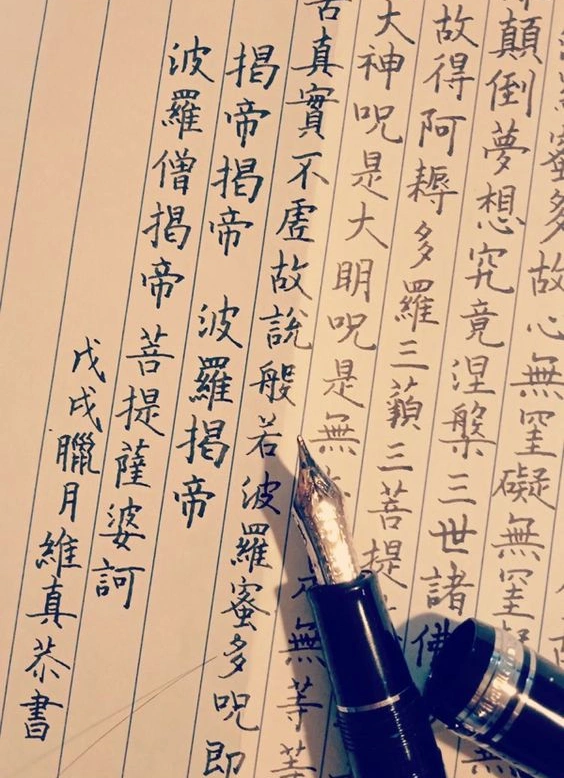 蜜多故心無罣礙無罣
顛倒夢想究竟涅槃三世諸佛
故得阿耨多羅三藐三菩提
大神呪是大明呪是無無等
真實不虛故說般若波羅蜜多呪即
揭帝揭帝 波羅揭帝
波羅僧揭帝菩提薩婆訶
戊戌臘月維真恭書